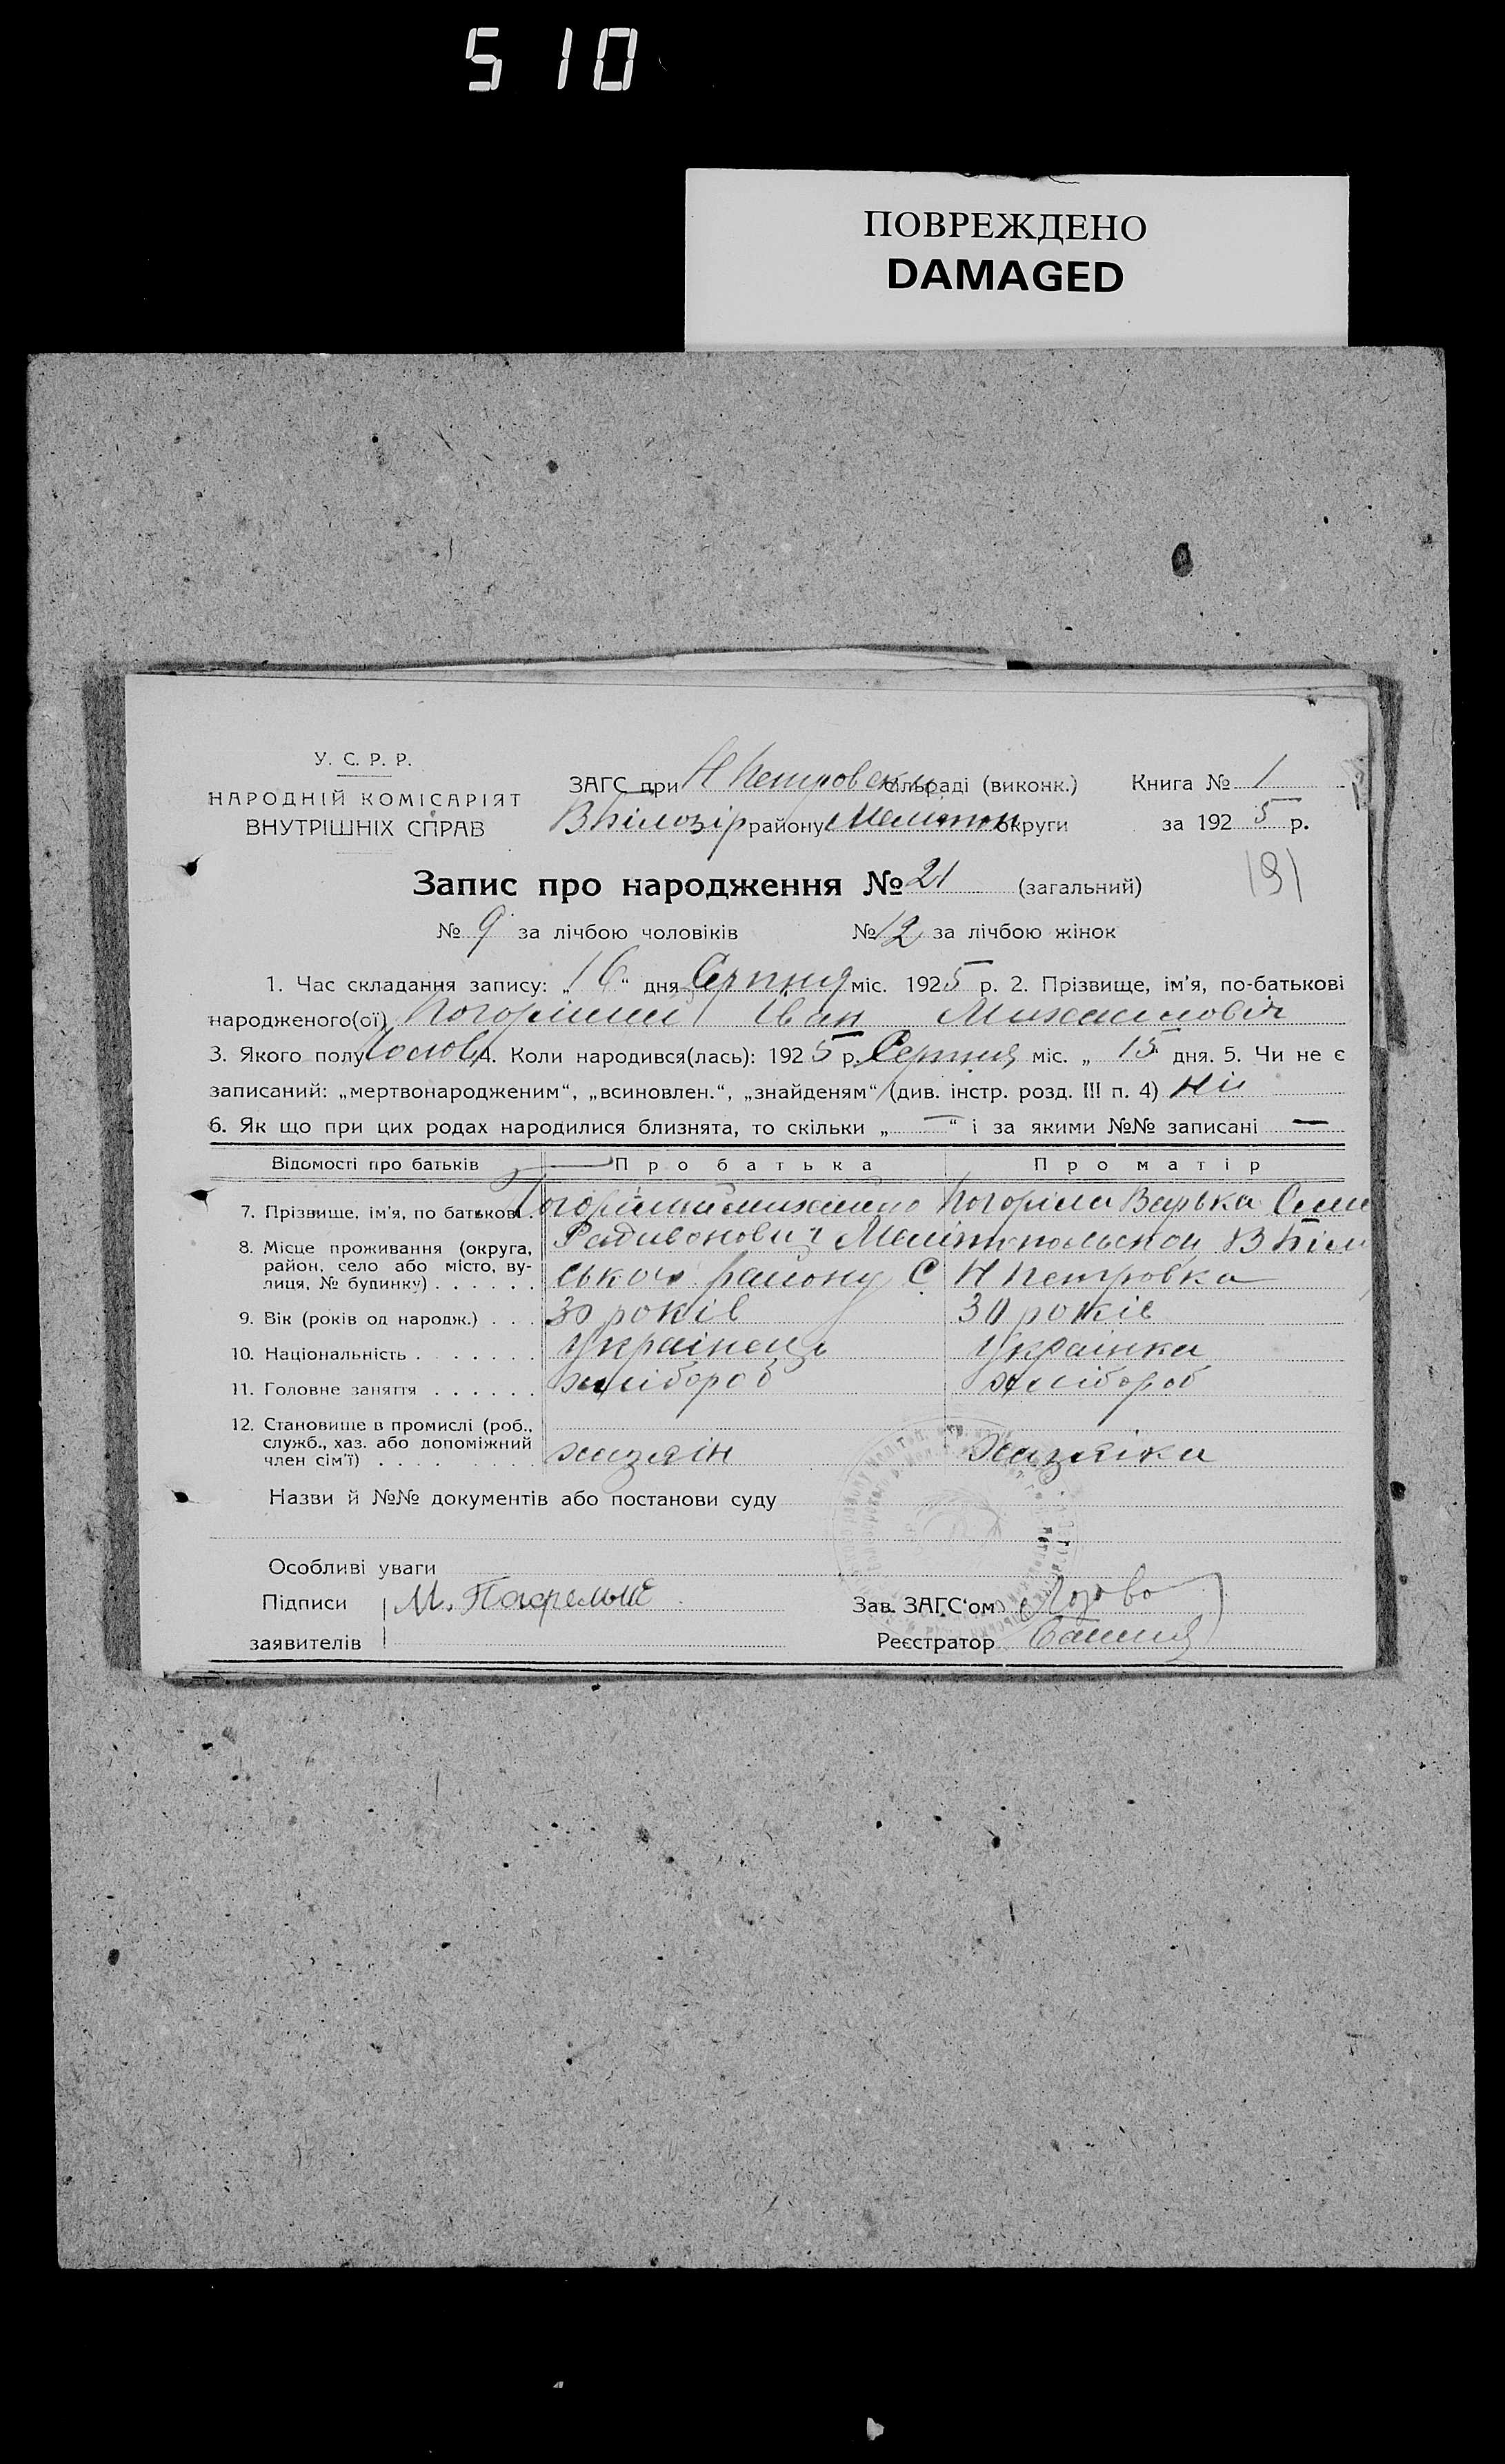 510
ПОВРЕЖДЕНО
DAMAGED
У. С. Р. Р.
НАРОДНІЙ КОМІСАРІЯТ
ВНУТРІШНІХ СПРАВ
ЗАГС при Н Петровськ сільраді (виконк.) Книга № 1
ВБілозір району Мелітоп округи за 1925 р.
Запис про народження № 21 (загальний)
191
№ 9 за лічбою чоловіків № 12 за лічбою жінок
1. Час складання запису: „16“ дня Серпня міс. 1925 р. 2. Прізвище, ім'я, по-батькові
народженого(ої) Погорілий Іван Михайлович
3. Якого полу чолов 4. Коли народився(лась): 1925 р. Серпня міс. „ 15 дня. 5. Чи не є
записаний: „мертвонародженим“, „всиновлен.“, „знайденям“ (див. інстр. розд. III п. 4) Ні
6. Як що при цих родах народилися близнята, то скільки „ — “ і за якими №№ записані —
Відомості про батьків Про батька Про матір
7. Прізвище, ім'я, по батькові . Погорілий Михайло Погоріла Варька Семе
Радивонович Мелітопольської ВБіло
8. Місце проживання (округа,
район, село або місто, ву-
лиця, № будинку) . . . . . ського району С Н Петровка
9. Вік (років од народж.) . . . 30 років 30 років
10. Національність . . . . . . . Українець Українка
11. Головне заняття . . . . . . хлібороб хлібороб
12. Становище в промислі (роб.,
служб., хаз. або допоміжний
член сім'ї) . . . . . . . . хазяін Хазяіка
Назви й №№ документів або постанови суду
Особливі уваги
Підписи М. Погрелый Зав. ЗАГС'ом
заявителів Реєстратор